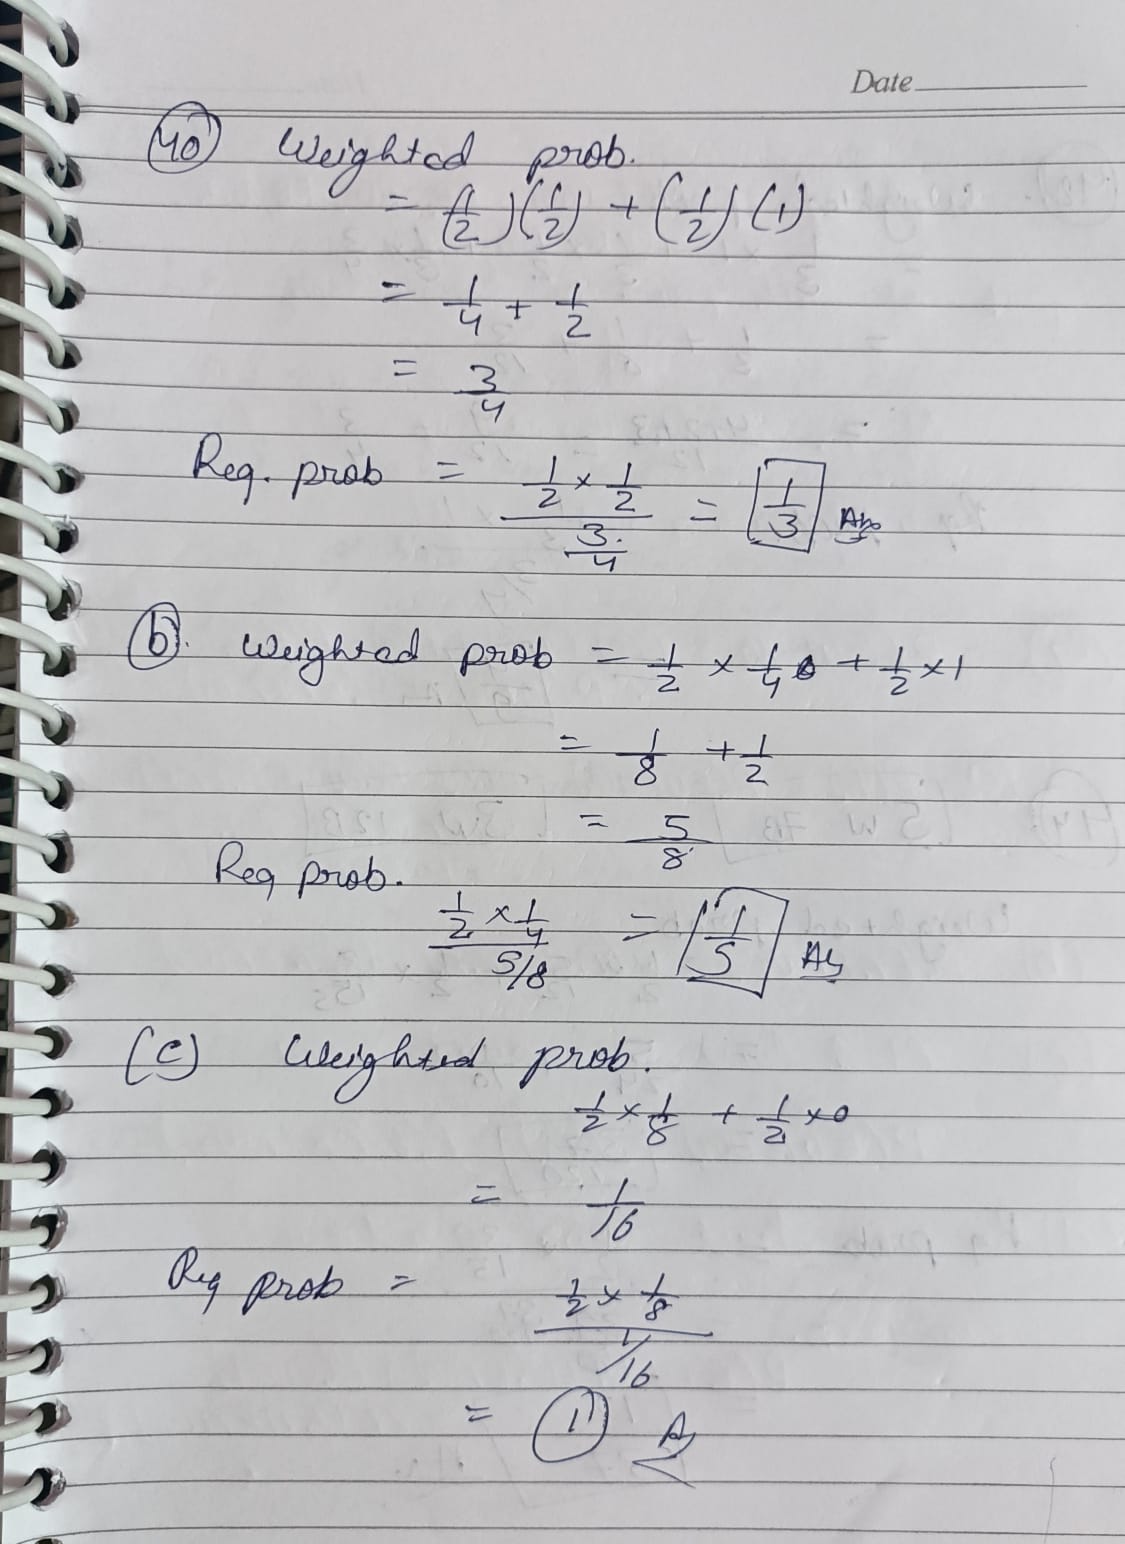 Date
40 Weighted prob.
= (1/2)(1/2) + (1/2)(1)
= 1/4 + 1/2
= 3/4
Req. prob = (1/2 × 1/2)/(3/4) = 1/3 Ans
b. Weighted prob = 1/2 × 1/4 + 1/2 × 1
= 1/8 + 1/2
= 5/8
Req prob.
(1/2 × 1/4)/(5/8) = 1/5 Ans
(c) Weighted prob.
1/2 × 1/8 + 1/2 × 0
= 1/16
Req prob =
(1/2 × 1/8)/(1/16)
= 1